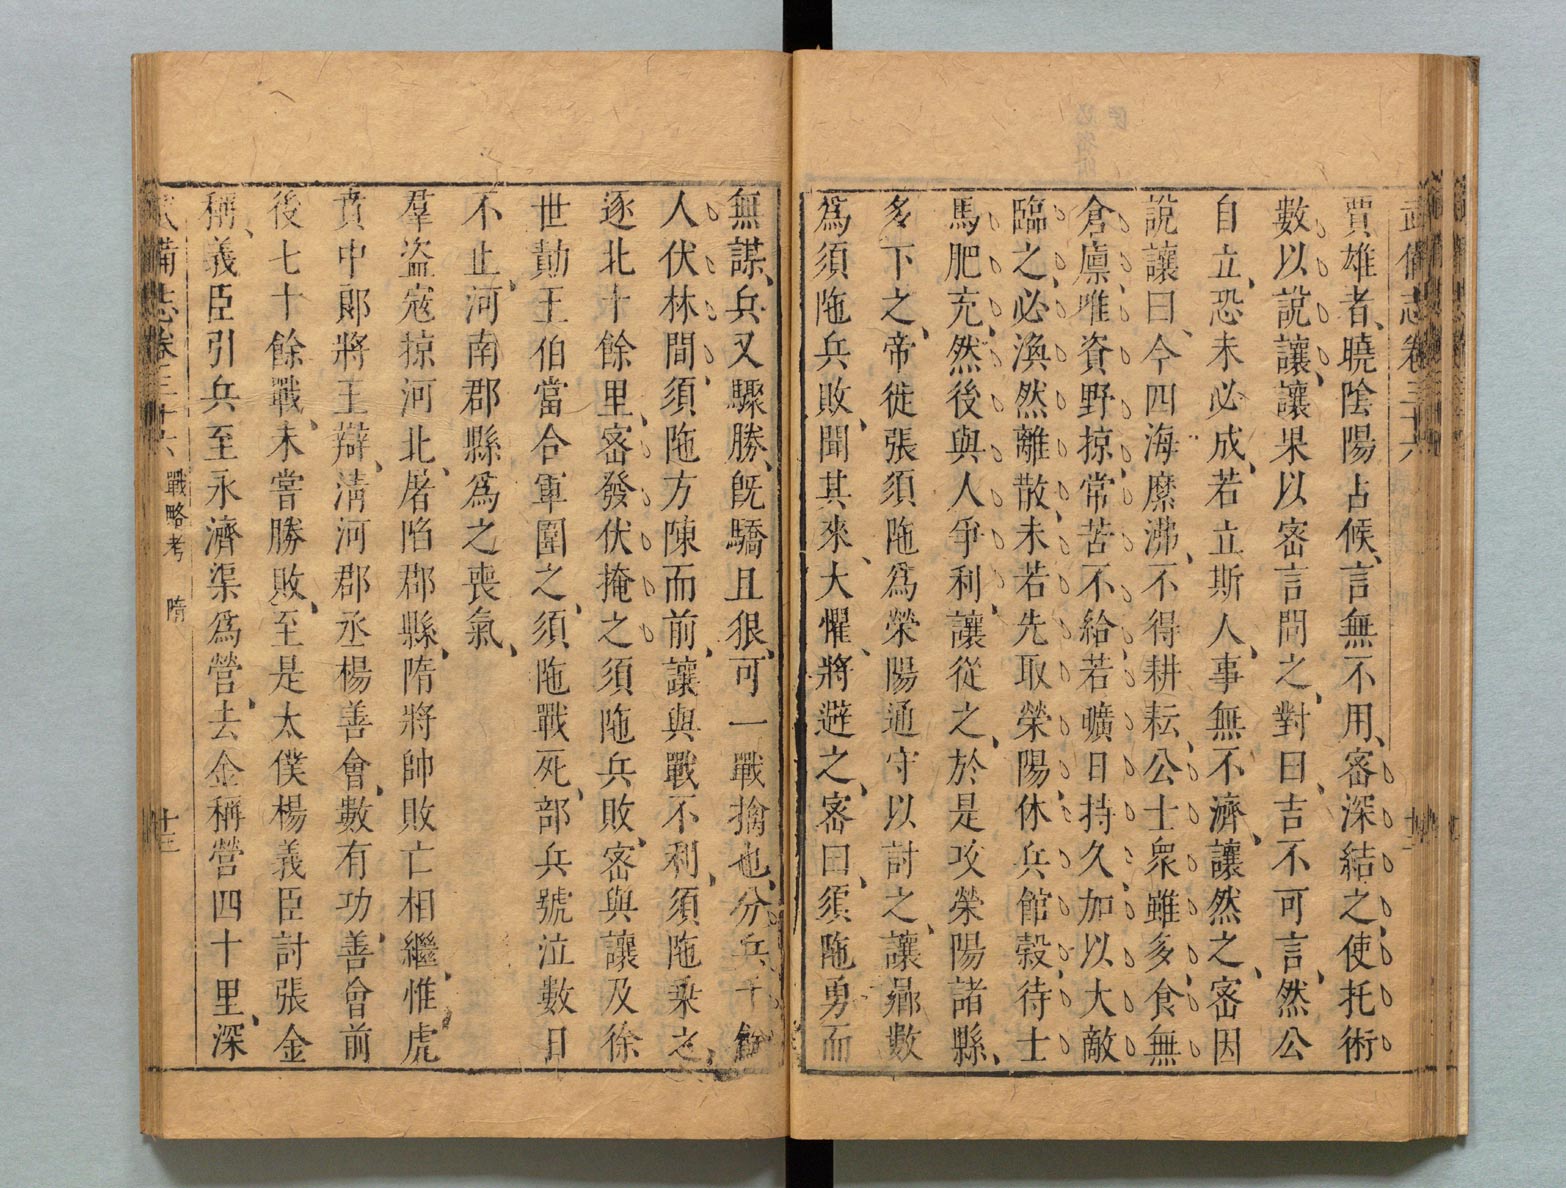 武備志卷三十六
賈雄者、曉陰陽占候、言無不用、密深結之、使托術
數以說讓、讓果以密言問之、對曰、吉不可言、然公
自立、恐未必成、若立斯人、事無不濟、讓然之、密因
說讓曰、今四海糜沸、不得耕耘、公士衆雖多、食無
倉廩、唯資野掠、常苦不給、若曠日持久、加以大敵
臨之、必渙然離散、未若先取榮陽、休兵館穀、待士
馬肥充、然後與人爭利、讓從之、於是攻榮陽諸縣、
多下之、帝徙張須陁爲榮陽通守以討之、讓曏數
爲須陁兵敗、聞其來、大懼、將避之、密曰、須陁勇而
無謀、兵又驟勝、旣驕且狠、可一戰擒也、分兵千餘
人、伏林間、須陁方陳而前、讓與戰不利、須陁乘之、
逐北十餘里、密發伏掩之、須陁兵敗、密與讓及徐
世勣王伯當合軍圍之、須陁戰死、部兵號泣數日
不止、河南郡縣爲之喪氣、
羣盜寇掠河北、屠陷郡縣、隋將帥敗亡相繼、惟虎
賁中郞將王辯、淸河郡丞楊善會、數有功、善會前
後七十餘戰、未嘗勝敗、至是太僕楊義臣討張金
稱、義臣引兵至永濟渠爲營、去金稱營四十里、深
武備志卷三十六 戰略考 隋 廿三